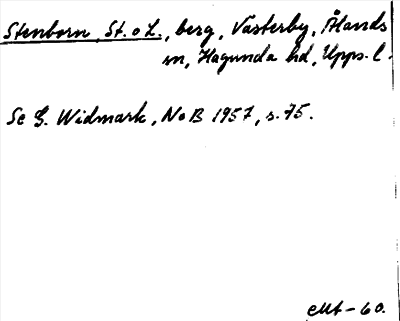 Stenborn, St. o L., berg, Västerby, Ålands
m, Hagunda hd, Upps. l.
Se G. Widmark, NoB 1957, s. 75.
EMt-60.